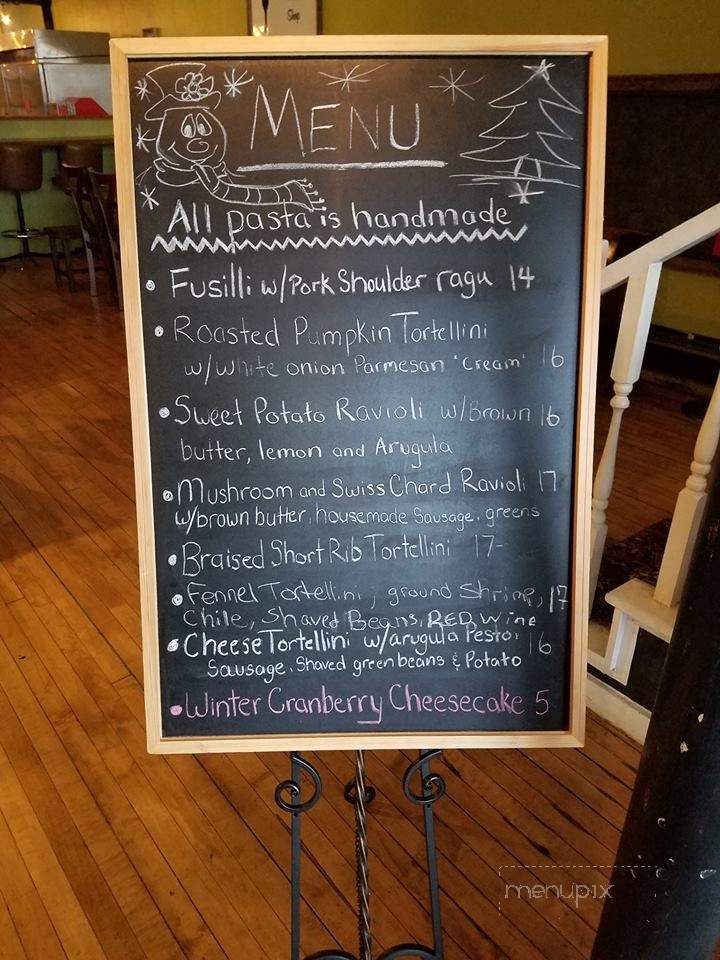 MENU
All pasta is handmade
• Fusilli w/Pork Shoulder ragu 14
• Roasted Pumpkin Tortellini
w/white onion Parmesan 'cream' 16
• Sweet Potato Ravioli w/Brown 16
butter, lemon and Arugula
• Mushroom and Swiss Chard Ravioli 17
w/brown butter, housemade Sausage, greens
• Braised Short Rib Tortellini 17-
• Fennel Tortellini, ground Shrimp, 17
Chile, Shaved Beans, RED Wine
• Cheese Tortellini w/arugula Pesto, 16
Sausage, Shaved green beans & Potato
• Winter Cranberry Cheesecake 5
menupix